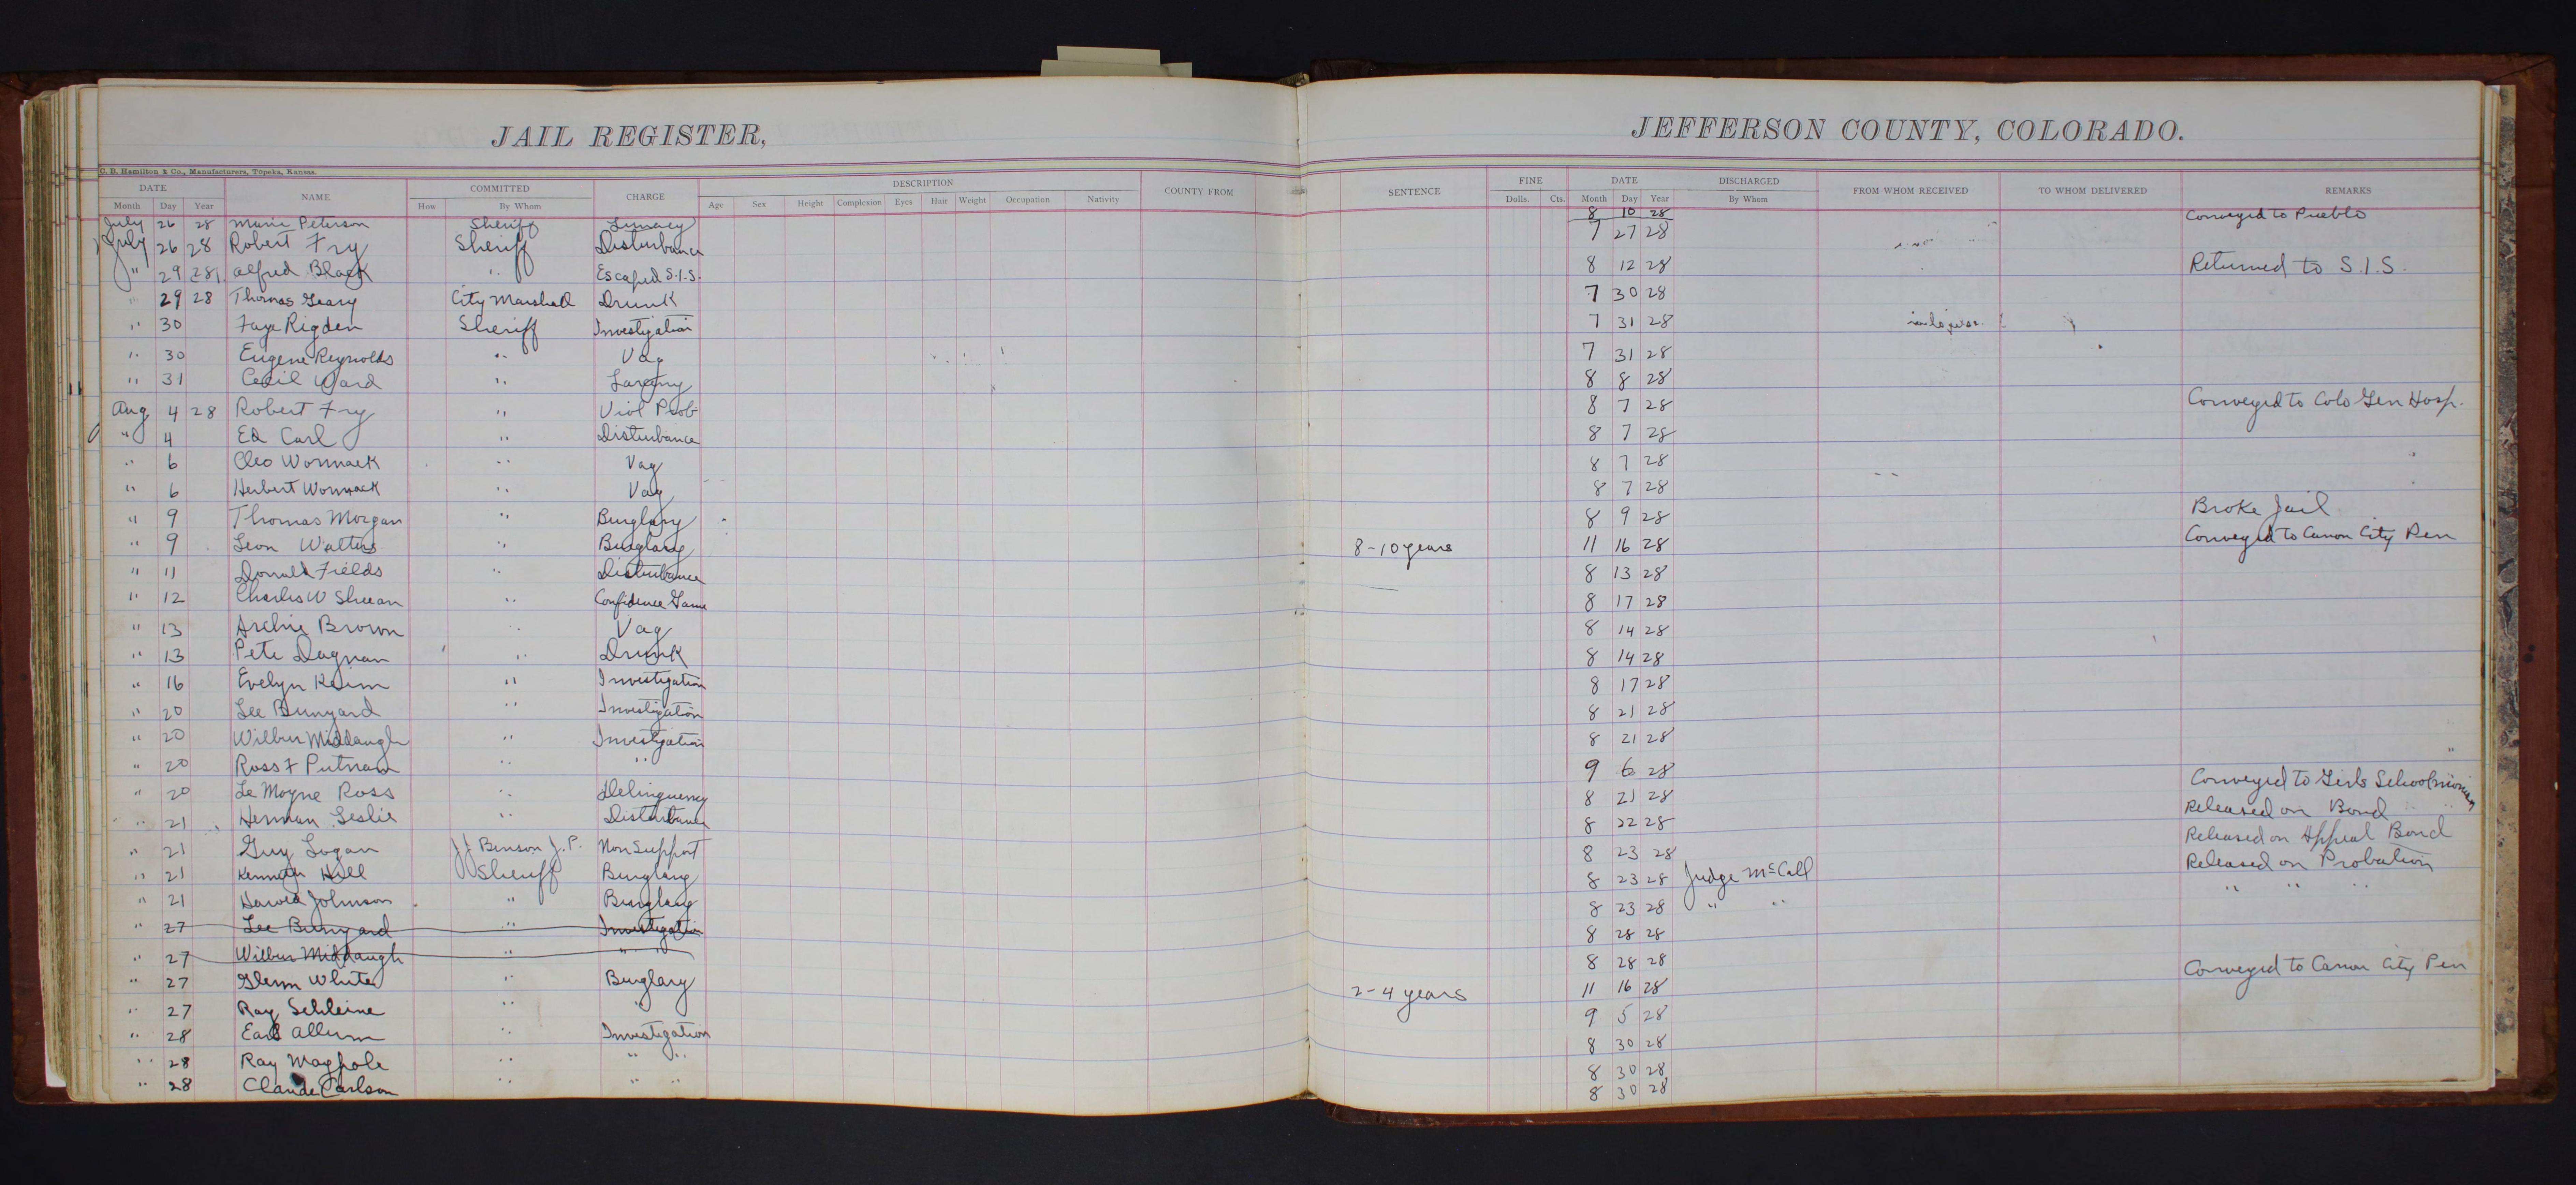 JAIL REGISTER, JEFFERSON COUNTY, COLORADO.
C. B. Hamilton & Co., Manufacturers, Topeka, Kansas.
DATE NAME COMMITTED CHARGE DESCRIPTION COUNTY FROM SENTENCE FINE DATE DISCHARGED FROM WHOM RECEIVED TO WHOM DELIVERED REMARKS
Month Day Year How By Whom Age Sex Height Complexion Eyes Hair Weight Occupation Nativity Dolls. Cts. Month Day Year By Whom
July 26 28 Marie Peterson Sheriff Lunacy 8 10 28 Conveyed to Pueblo
July 26 28 Robert Fry Sheriff Disturbance 7 27 28
" 29 28 Alfred Black " Escaped S.I.S. 8 12 28 Returned to S.I.S.
" 29 28 Thomas Geary City Marshall Drunk 7 30 28
" 30 Faye Rigden Sheriff Investigation 7 31 28
" 30 Eugene Reynolds " Vag 7 31 28
" 31 Cecil Ward " Larceny 8 8 28
Aug 4 28 Robert Fry " Viol Prob 8 7 28 Conveyed to Colo Gen Hosp.
" 4 Ed Carl " Disturbance 8 7 28
" 6 Cleo Wommack " Vag 8 7 28
" 6 Herbert Wommack " Vag 8 7 28
" 9 Thomas Morgan " Burglary 8 9 28 Broke Jail
" 9 Leon Walters " Burglary 8-10 years 11 16 28 Conveyed to Canon City Pen
" 11 Donald Fields " Disturbance 8 13 28
" 12 Charles W Sheean " Confidence Game 8 17 28
" 13 Archie Brown " Vag 8 14 28
" 13 Pete Dagnan " Drunk 8 14 28
" 16 Evelyn Keim " Investigation 8 17 28
" 20 Lee Bunyard " Investigation 8 21 28
" 20 Wilbur Middaugh " Investigation 8 21 28
" 20 Ross F Putnam " " 9 6 28
" 20 Le Moyne Ross " Delinquency 8 21 28 Conveyed to Girls School
" 21 Herman Leslie " Disturbance 8 22 28 Released on Bond
" 21 Guy Logan J J Benson J.P. Non Support 8 23 28 Released on Appeal Bond
" 21 Kenneth Hill Sheriff Burglary 8 23 28 Judge McCall Released on Probation
" 21 Harold Johnson " Burglary 8 23 28 " " " " "
" 27 Lee Bunyard " Investigation 8 28 28
" 27 Wilbur Middaugh " " " 8 28 28
" 27 Glenn White " Burglary 2-4 years 11 16 28 Conveyed to Canon City Pen
" 27 Ray Schleine " " 9 5 28
" 28 Earl Allum " Investigation 8 30 28
" 28 Ray Magpole " " " 8 30 28
" 28 Claude Carlson " " " 8 30 28